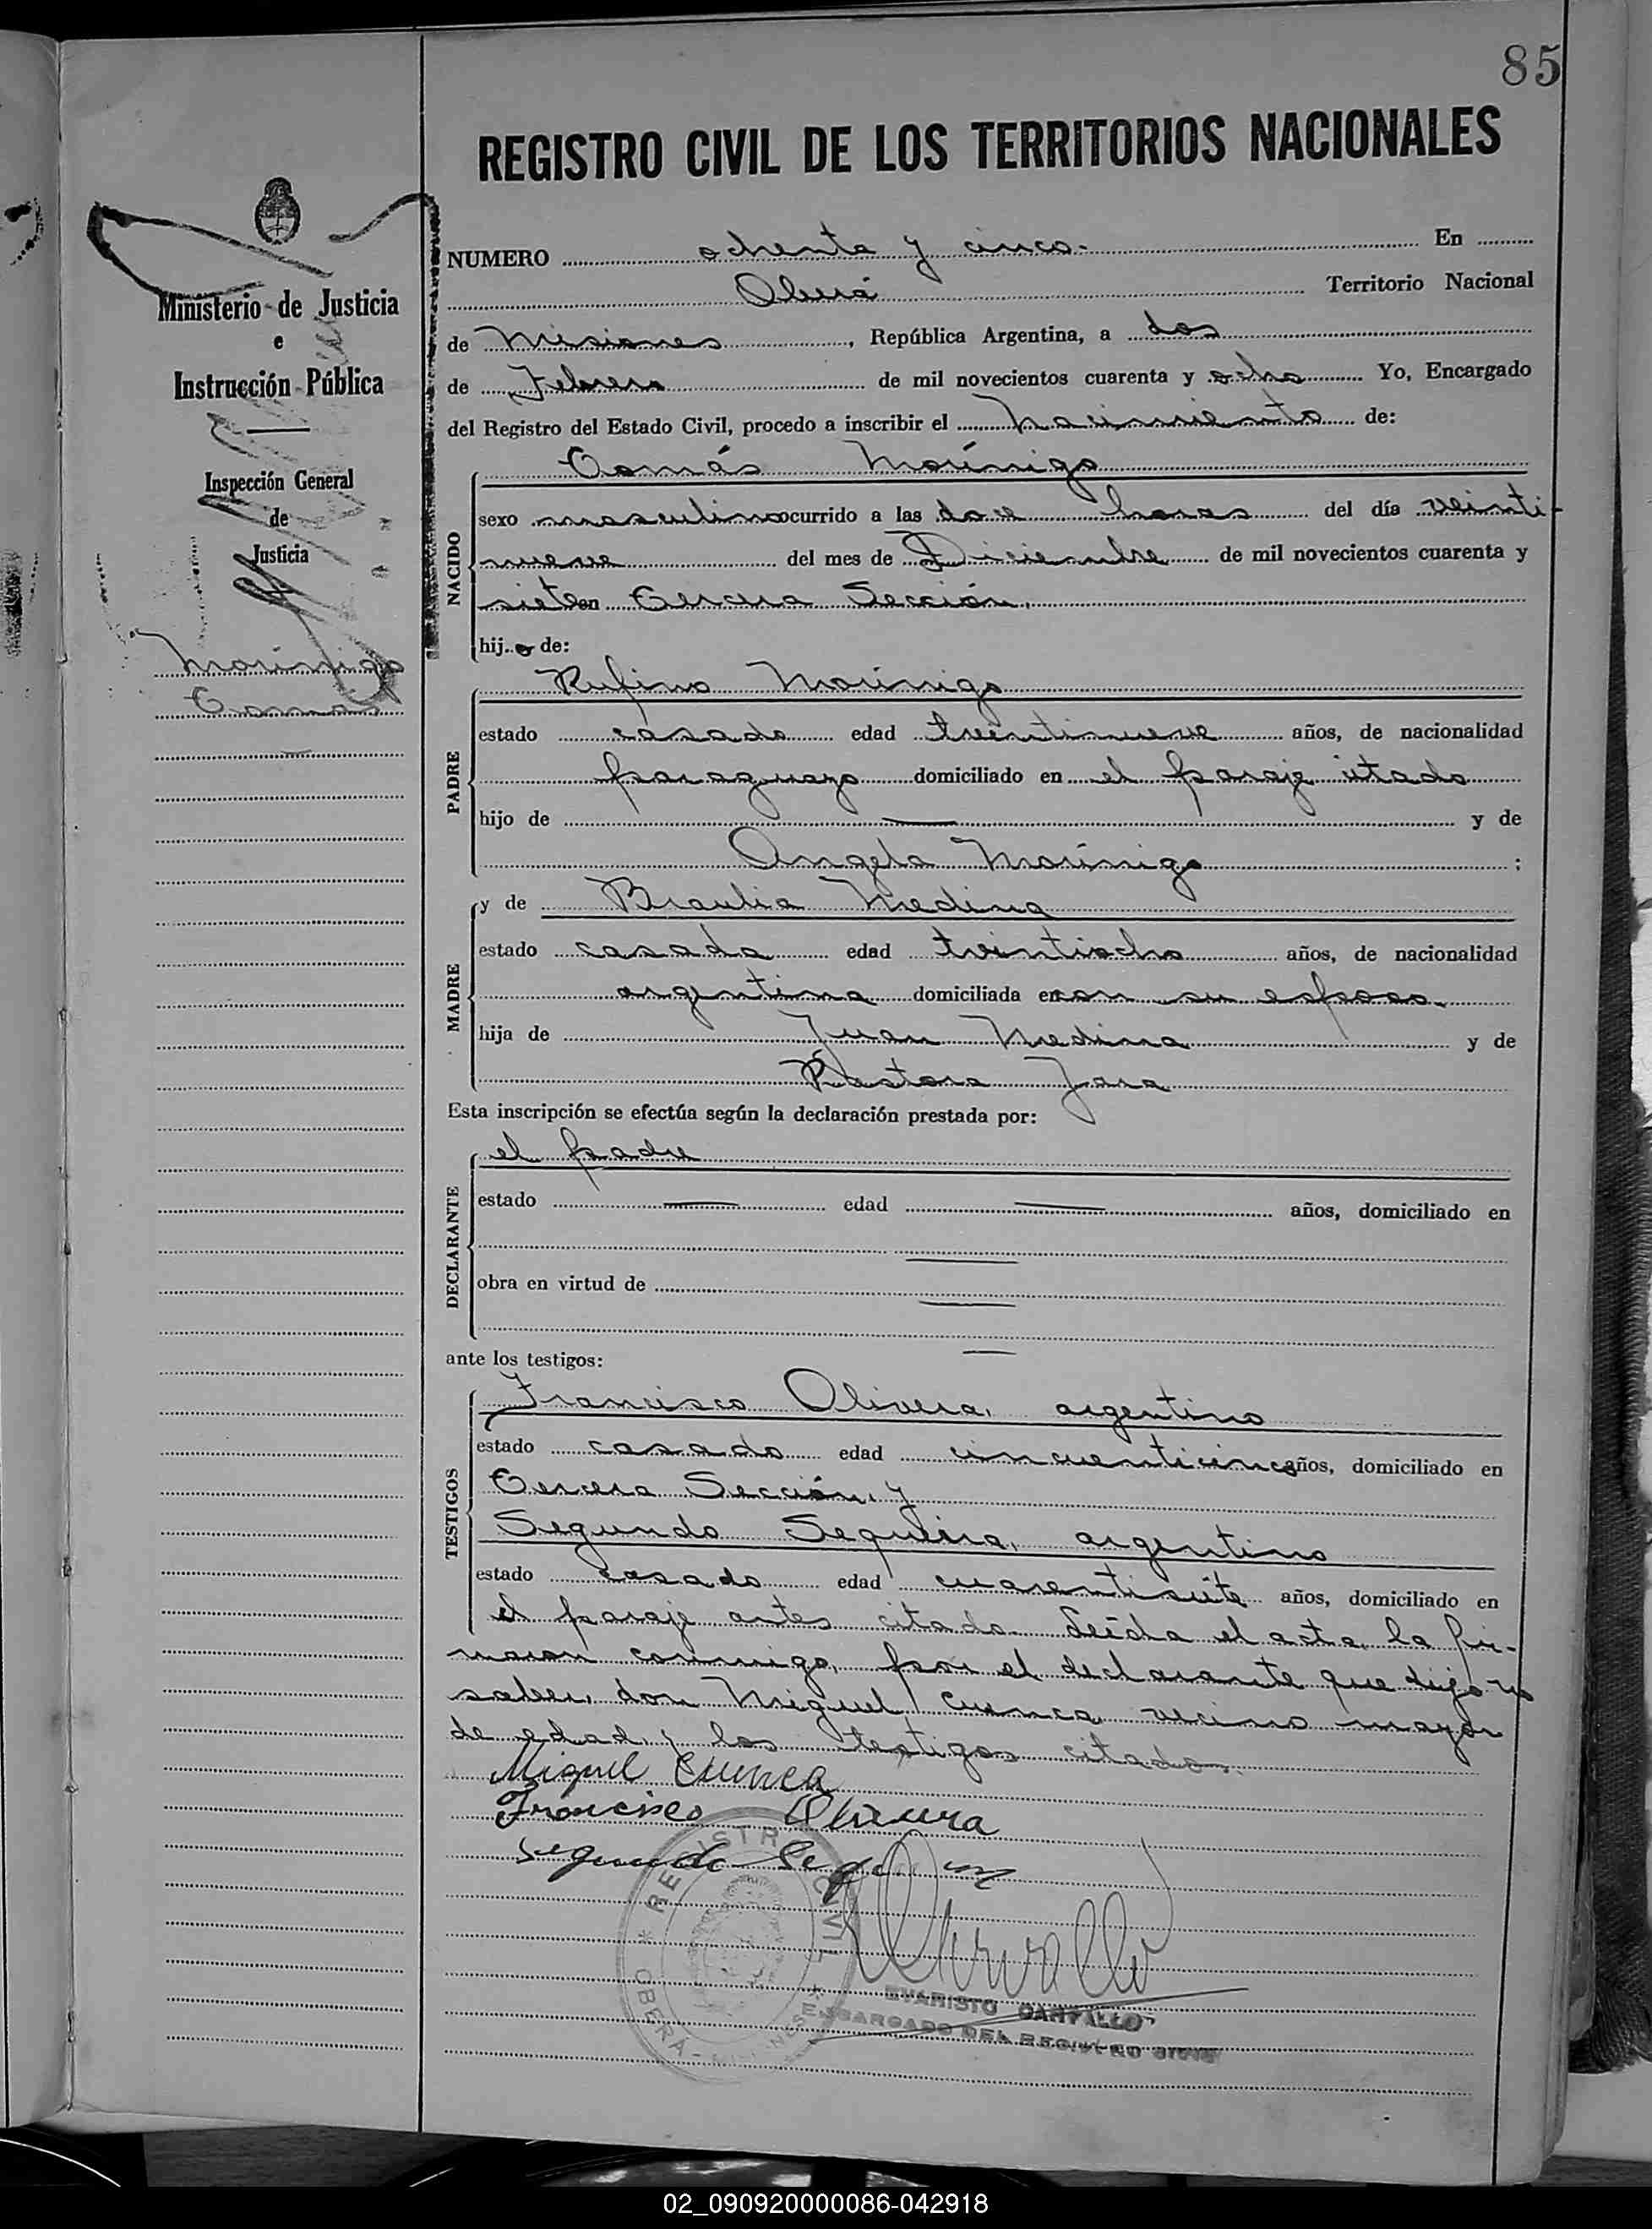 85
REGISTRO CIVIL DE LOS TERRITORIOS NACIONALES
Ministerio de Justicia
e
Instrucción Pública
Inspección General
de
Justicia
Morínigo
Tomás
NUMERO ochenta y cinco.- En
Oberá Territorio Nacional
de Misiones, República Argentina, a dos
de Febrero de mil novecientos cuarenta y ocho Yo, Encargado
del Registro del Estado Civil, procedo a inscribir el nacimiento de:
NACIDO
Tomás Morínigo
sexo masculino ocurrido a las doce horas del día veinti-
nueve del mes de Diciembre de mil novecientos cuarenta y
siete en Tercera Sección,
hijo de:
PADRE
Rufino Morínigo
estado casado edad treintinueve años, de nacionalidad
paraguayo domiciliado en el paraje citado
hijo de — y de
Angela Morínigo ;
MADRE
y de Braulia Medina
estado casada edad treintiocho años, de nacionalidad
argentina domiciliada en con su esposo.
hija de Juan Medina y de
Pastora Jara
Esta inscripción se efectúa según la declaración prestada por:
DECLARANTE
el padre
estado — edad — años, domiciliado en
—
obra en virtud de —
—
ante los testigos:
TESTIGOS
Francisco Olivera, argentino
estado casado edad cincuenticinco años, domiciliado en
Tercera Sección, y
Segundo Sequeira, argentino
estado casado edad cuarentisiete años, domiciliado en
el paraje antes citado. Leída el acta, la fir-
maron conmigo, por el declarante que dijo no
saber, don Miguel Cuenca vecino mayor
de edad, y los testigos citados.
Miguel Cuenca
Francisco Olivera
Segundo
REGISTRO CIVIL
* OBERÁ - MISIONES *
EVARISTO CARVALLO
ENCARGADO DEL REGISTRO CIVIL
02_090920000086-042918